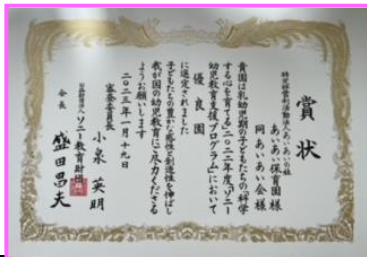 賞状
特定非営利活動法人あいあいの杜
あいあい保育園様
同あいあい会様
貴園は乳幼児期の子どもたちの「科学
する心」を育てる二〇二二年度「ソニー
幼児教育支援プログラム」において
優良園
に選定されました
子どもたちの豊かな感性と創造性を伸ばし
我が国の幼児教育に尽力くださる
ようお願いします
二〇二三年一月十九日
審査委員長
小泉英明
公益財団法人ソニー教育財団
会長
盛田昌夫